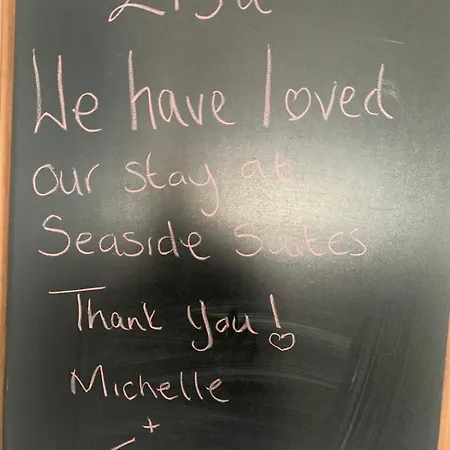 Lisa
We have loved
our stay at
Seaside Suites
Thank You!
Michelle
+